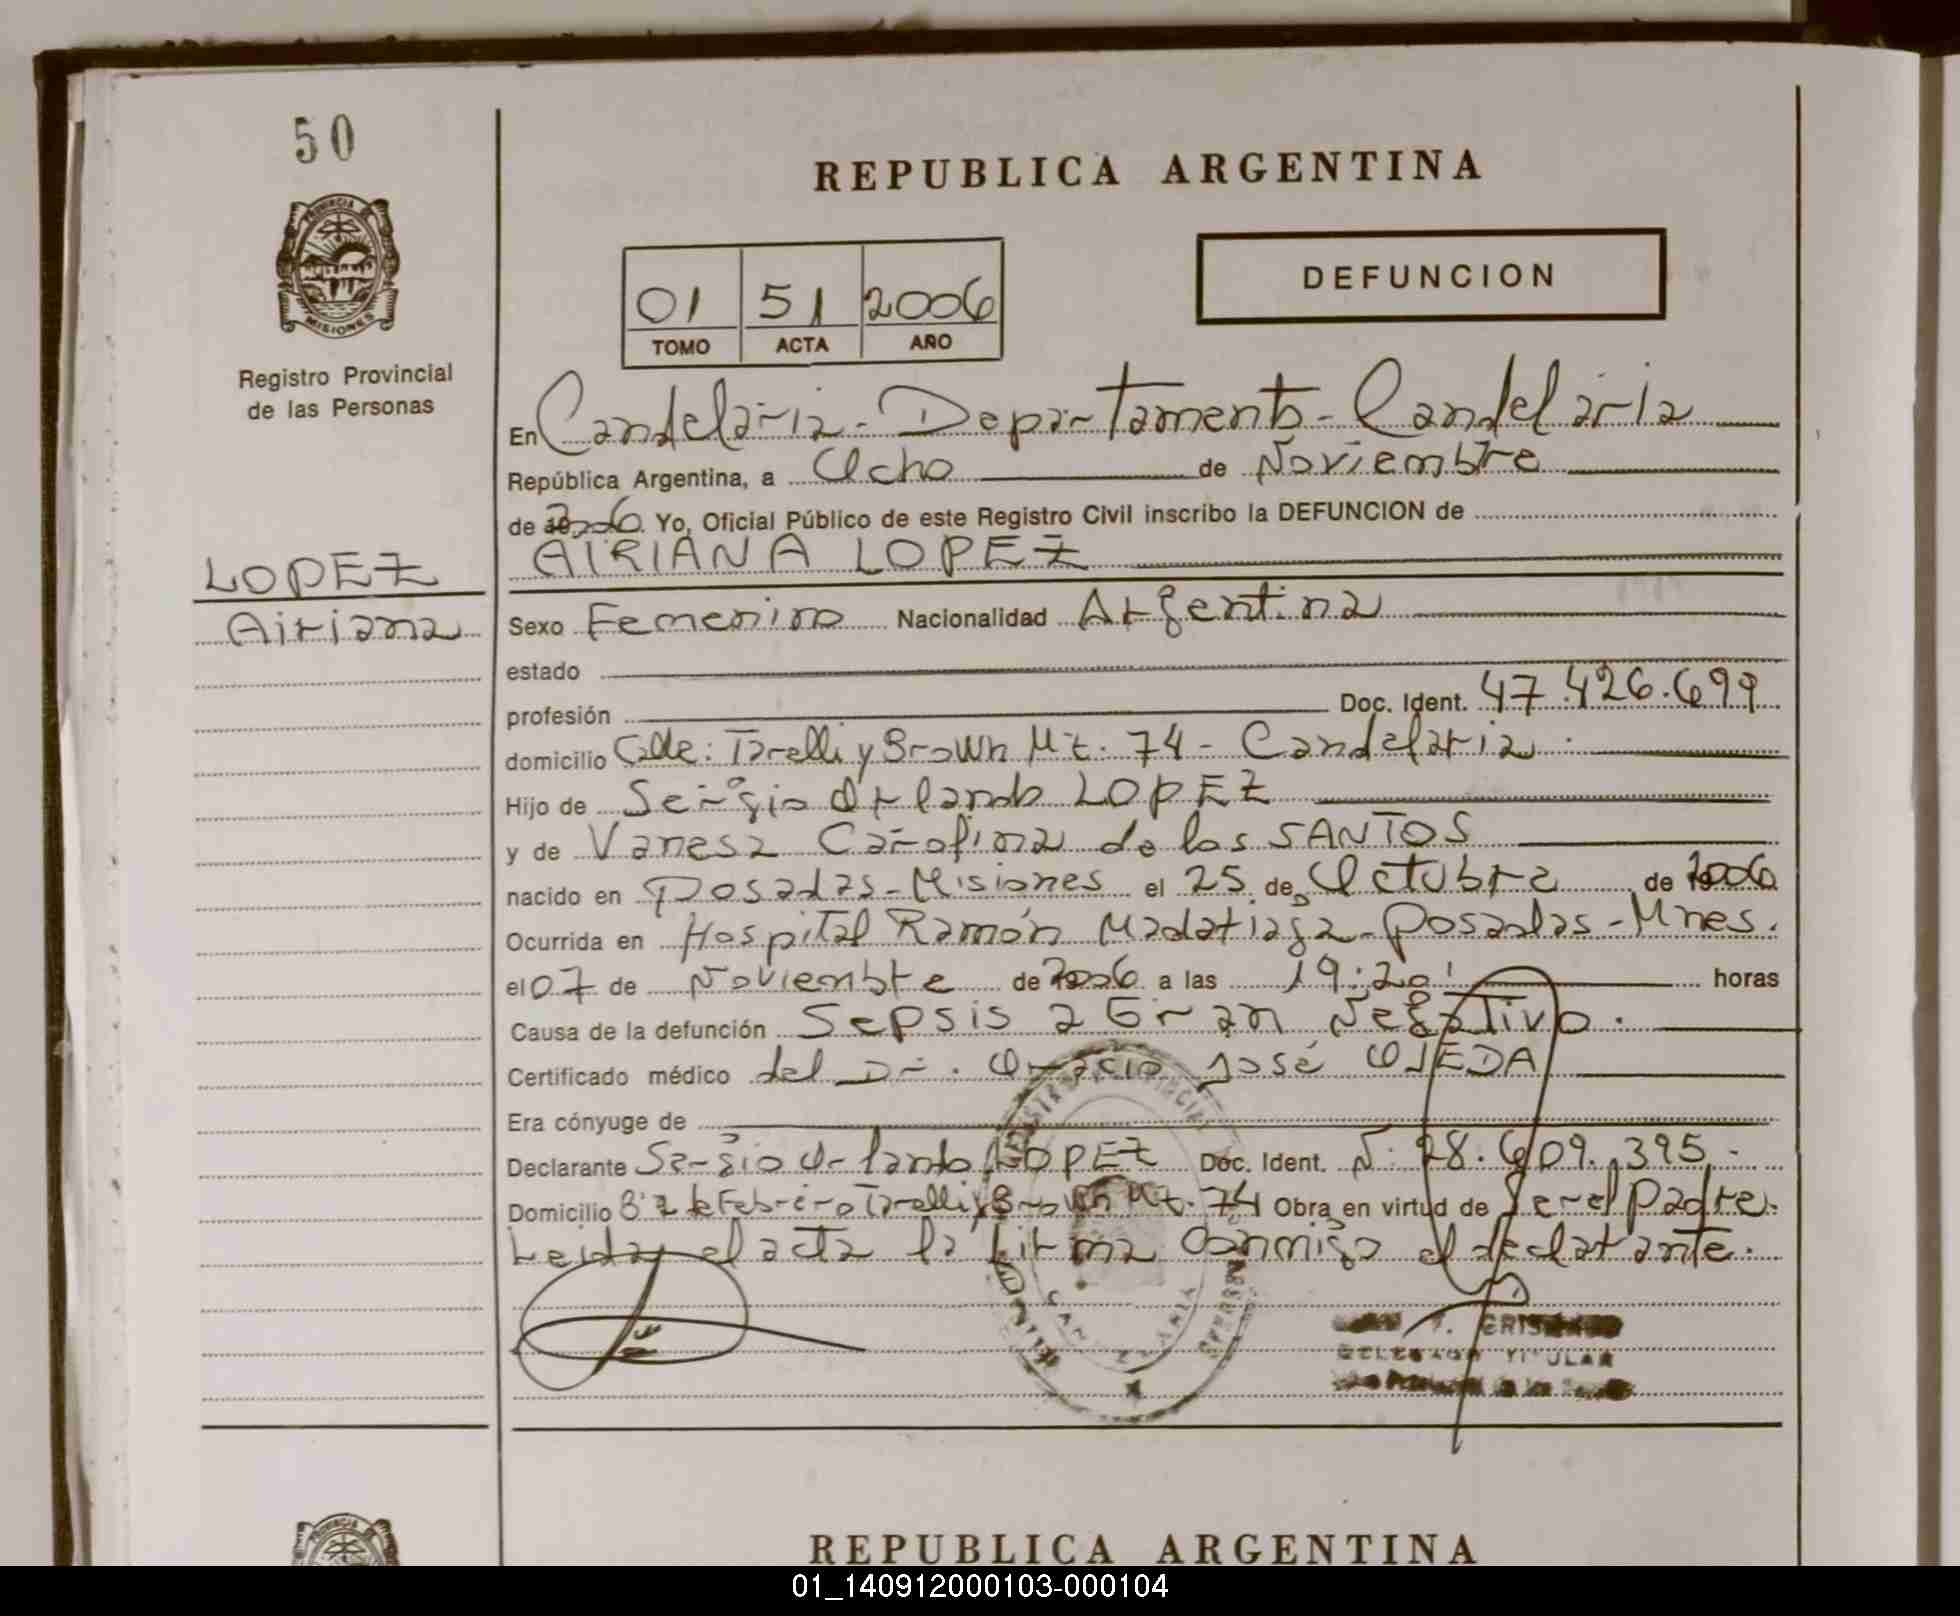 50
REPUBLICA ARGENTINA
PROVINCIA DE
MISIONES
DEFUNCION
01 51 2006
TOMO ACTA AÑO
Registro Provincial
de las Personas
En Candelaria - Departamento - Candelaria
República Argentina, a Ocho de Noviembre
de 2006 Yo, Oficial Público de este Registro Civil inscribo la DEFUNCION de
AIRIANA LOPEZ
LOPEZ
Airiana
Sexo Femenino Nacionalidad Argentina
estado
profesión Doc. Ident. 47.426.699
domicilio Calle: Tarelli y Brown Mz. 74 - Candelaria
Hijo de Sergio Orlando LOPEZ
y de Vanesa Carolina de los SANTOS
nacido en Posadas - Misiones el 25 de Octubre de 2006
Ocurrida en Hospital Ramón Madariaga - Posadas - Mnes.
el 07 de Noviembre de 2006 a las 19:20' horas
Causa de la defunción Sepsis a Gran Negativo.
Certificado médico del Dr. Oracio José OJEDA
Era cónyuge de
Declarante Sergio Orlando LOPEZ Doc. Ident. N: 28.609.395
Domicilio Bº 2 de Febrero Tarelli y Brown Mz. 74 Obra en virtud de Ser el Padre.
Leida el acta la firma conmigo el declarante.
CANDELARIA
DELEGADO TITULAR
REPUBLICA ARGENTINA
PROVINCIA DE
01_140912000103-000104